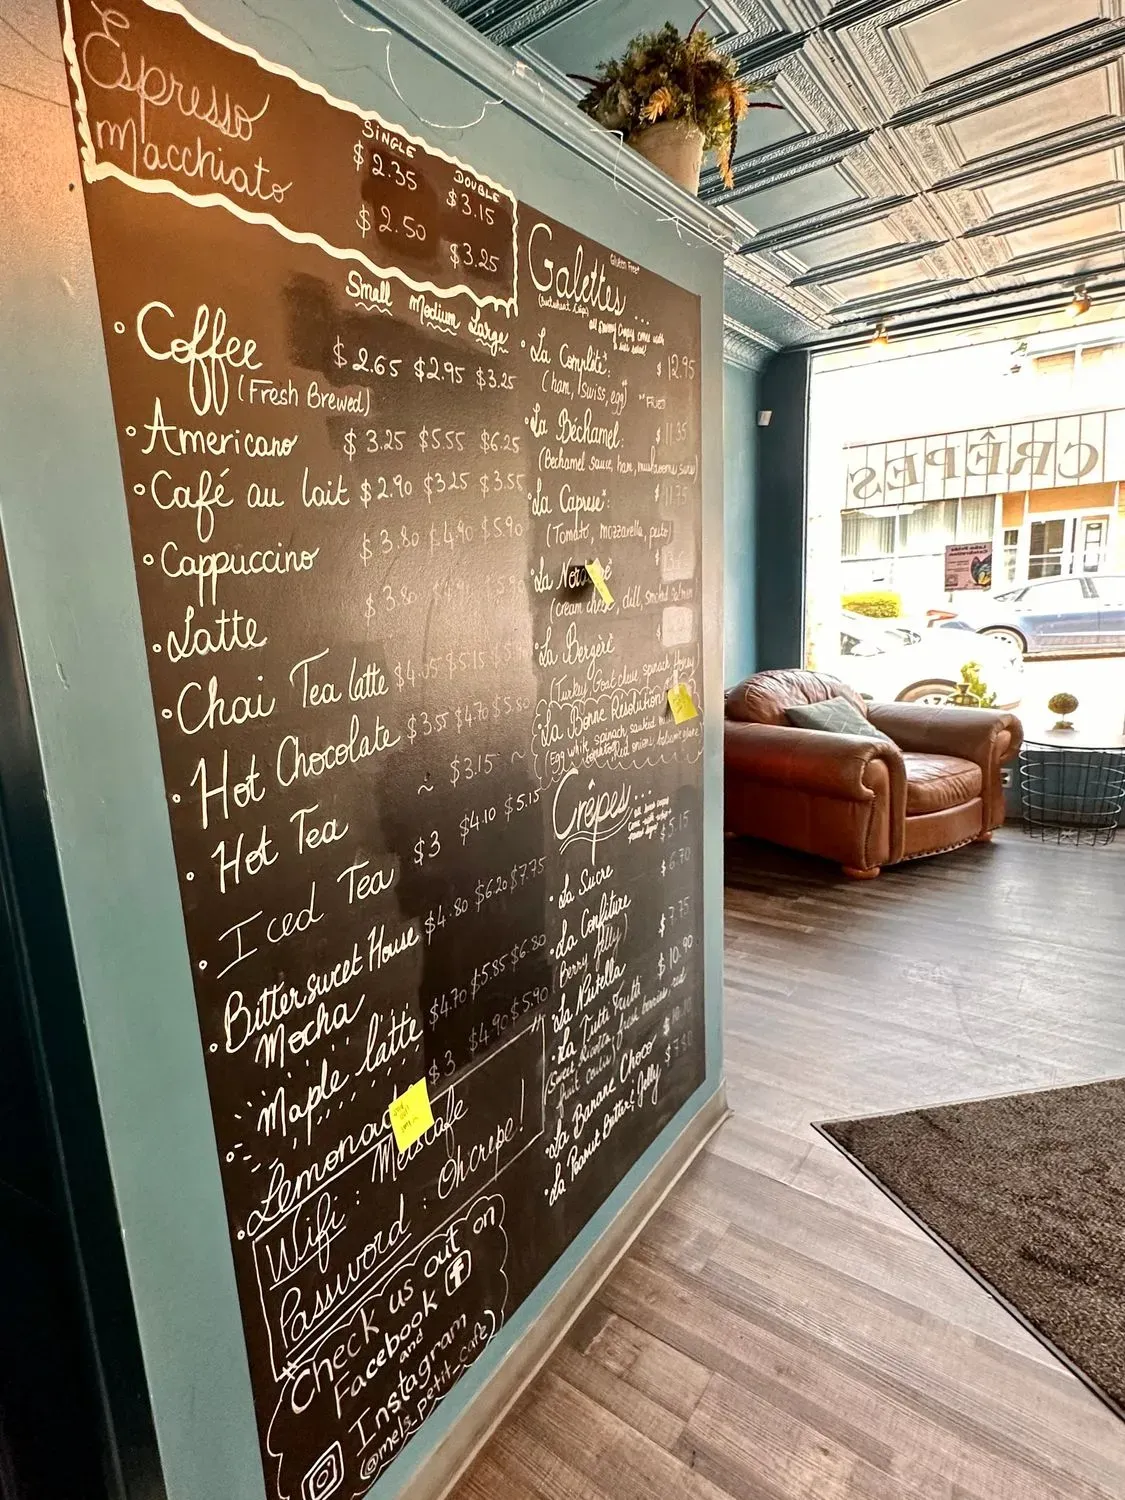 Espresso
Macchiato
SINGLE DOUBLE
$2.35 $3.15
$2.50 $3.25
Small Medium Large
Coffee $2.65 $2.95 $3.25
(Fresh Brewed)
Americano $3.25 $5.55 $6.25
Café au lait $2.90 $3.25 $3.55
Cappuccino $3.80 $4.90 $5.90
Latte $3.80
Chai Tea latte
Hot Chocolate $3.55 $4.70 $5.80
Hot Tea ~ $3.15 ~
Iced Tea $3 $4.10 $5.15
Bittersweet House $4.80 $6.20 $7.75
Mocha
Maple latte $4.70 $5.85 $6.80
Lemonade $3 $4.90 $5.90
Wifi: Melscafe
Password: Ohcrepe!
Check us out on
Facebook
and
Instagram
@mels_petit_cafe
Galettes...
Gluten Free*
La Complète: $12.95
(ham, Swiss, egg)
La Béchamel: $11.35
(Bechamel sauce, ham, mushrooms, swiss)
La Caprese: $11.75
(Tomato, mozzarella, pesto)
La
(cream cheese, dill, smoked salmon)
La Bergère
(Turkey, Goat cheese, spinach, Honey)
La Bonne Resolution
Crêpes...
La Sucre $5.15
La Confiture $6.70
(Berry Jelly)
La Nutella $7.75
La Tutti Frutti $10.90
La Banane Choco
La Peanut Butter & Jelly
CRÊPES